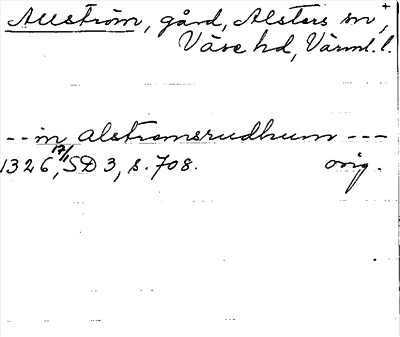 Allström, gård, Alsters sn,
Väse hd, Värml. l.
-- in alstromsrudhum ---
1326 17/1, SD 3, s. 708. orig.